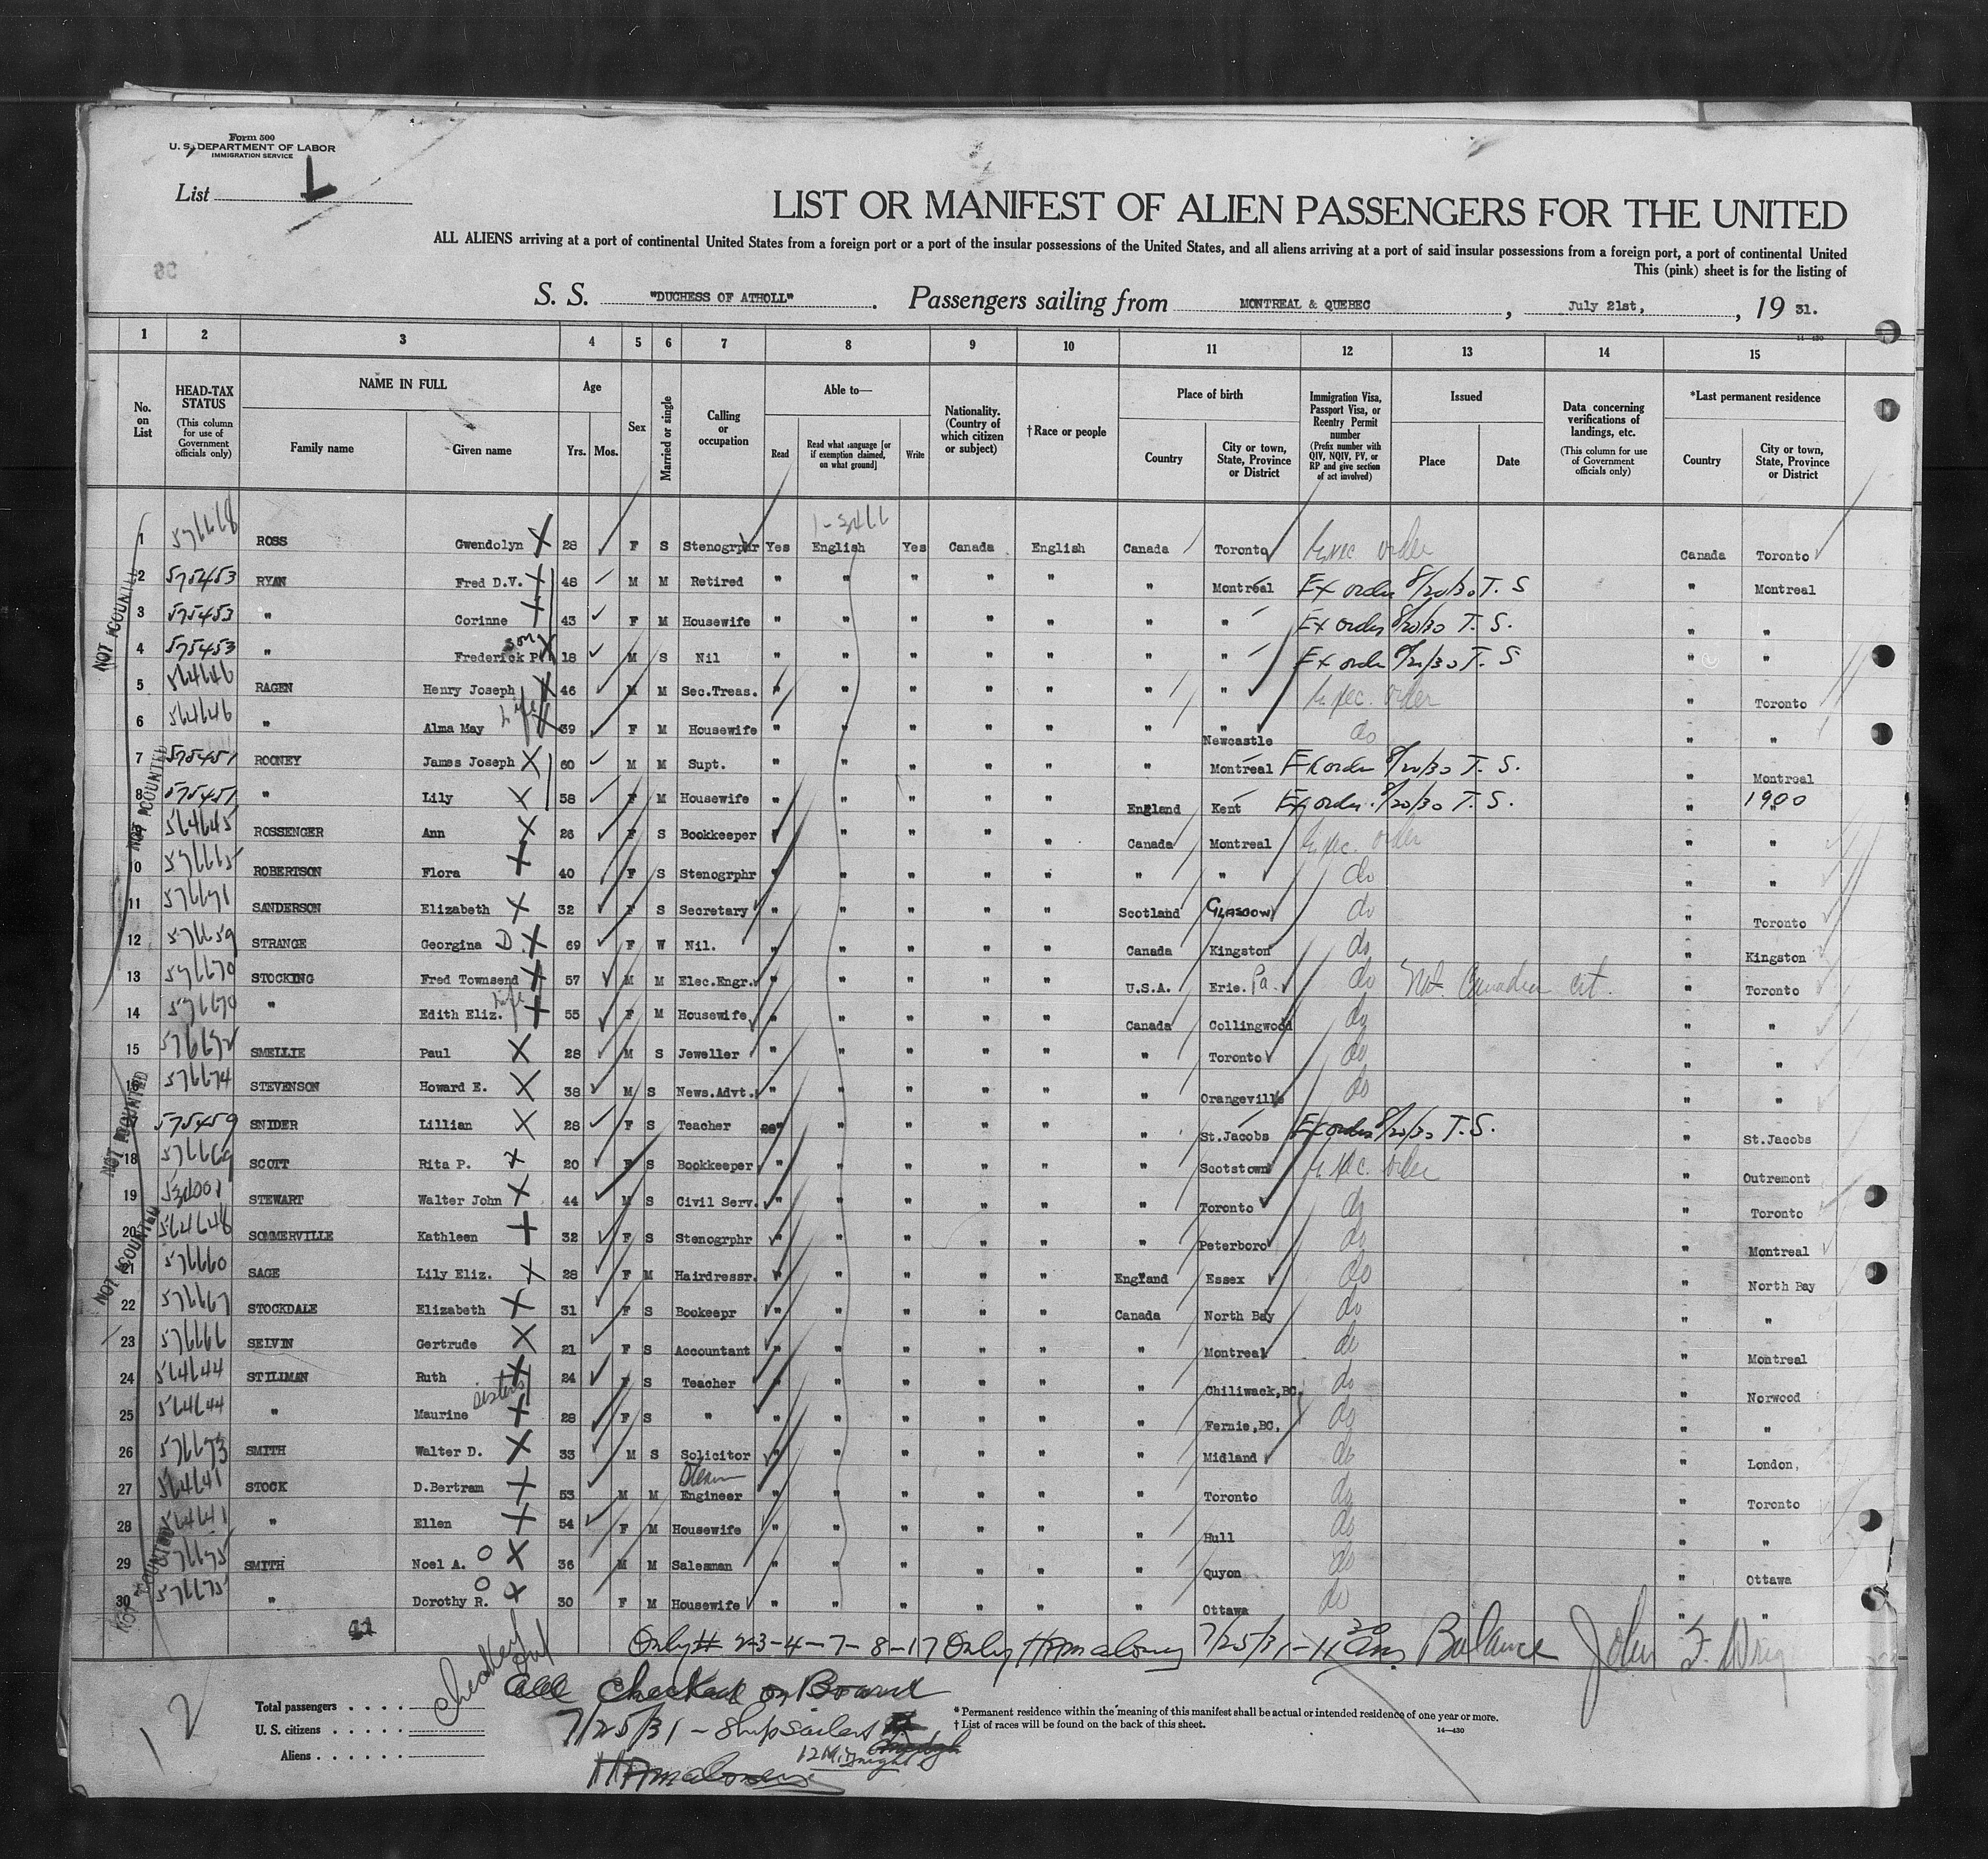 Form 500
U. S. DEPARTMENT OF LABOR
IMMIGRATION SERVICE
List
LIST OR MANIFEST OF ALIEN PASSENGERS FOR THE UNITED
ALL ALIENS arriving at a port of continental United States from a foreign port or a port of the insular possessions of the United States, and all aliens arriving at a port of said insular possessions from a foreign port, a port of continental United
This (pink) sheet is for the listing of
S. S. "DUCHESS OF ATHOLL". Passengers sailing from MONTREAL & QUEBEC, July 21st, 19 31.
14—430
1 2 3 4 5 6 7 8 9 10 11 12 13 14 15
No. on List
HEAD-TAX STATUS (This column for use of Government officials only)
NAME IN FULL
Family name
Given name
Age
Yrs. Mos.
Sex
Married or single
Calling or occupation
Able to—
Read
Read what language [or if exemption claimed, on what ground]
Write
Nationality. (Country of which citizen or subject)
†Race or people
Place of birth
Country
City or town, State, Province or District
Immigration Visa, Passport Visa, or Reentry Permit number (Prefix number with QIV, NQIV, PV, or RP and give section of act involved)
Issued
Place
Date
Data concerning verifications of landings, etc. (This column for use of Government officials only)
*Last permanent residence
Country
City or town, State, Province or District
1 576668 ROSS Gwendolyn 28 F S Stenogrphr Yes English Yes Canada English Canada Toronto Exec. order Canada Toronto
2 575453 RYAN Fred D.V. 48 M M Retired " " " " " " Montreal Ex order 8/20/30 T. S " Montreal
3 575453 " Corinne 43 F M Housewife " " " " " " " Ex order 8/20/30 T. S. " "
4 575453 " Frederick P. son 18 M S Nil " " " " " " " Ex order 8/20/30 T. S " "
5 564646 RAGEN Henry Joseph 46 M M Sec.Treas. " " " " " " " Exec. order " Toronto
6 564646 " Alma May wife 39 F M Housewife " " " " " " Newcastle do " "
7 575451 ROONEY James Joseph 60 M M Supt. " " " " " " Montreal Ex order 8/20/30 T. S. " Montreal
8 575451 " Lily 58 F M Housewife " " " " " England Kent Ex order 8/20/30 T. S. " 1900
9 564645 ROSSENGER Ann 26 F S Bookkeeper " " " " " Canada Montreal Exec. order " "
10 576665 ROBERTSON Flora 40 F S Stenogrphr " " " " " " " do " "
11 576671 SANDERSON Elizabeth 32 F S Secretary " " " " " Scotland GLASGOW do " Toronto
12 576659 STRANGE Georgina D 69 F W Nil. " " " " " Canada Kingston do " Kingston
13 576670 STOCKING Fred Townsend 57 M M Elec.Engr. " " " " " U.S.A. Erie. Pa. do Nat. Canadian cit. " Toronto
14 576670 " Edith Eliz. wife 55 F M Housewife " " " " " Canada Collingwood do " "
15 576672 SMELLIE Paul 28 M S Jeweller " " " " " " Toronto do " "
16 576674 STEVENSON Howard E. 38 M S News.Advt. " " " " " " Orangeville do " "
575459 SNIDER Lillian 28 F S Teacher " " " " " " St.Jacobs Ex order 8/20/30 T.S. " St.Jacobs
18 576669 SCOTT Rita P. 20 F S Bookkeeper " " " " " " Scotstown Exec. order " Outremont
19 STEWART Walter John 44 M S Civil Serv. " " " " " " Toronto do " Toronto
20 564648 SOMMERVILLE Kathleen 32 F S Stenogrphr " " " " " " Peterboro do " Montreal
21 576660 SAGE Lily Eliz. 28 F M Hairdressr. " " " " " England Essex do " North Bay
22 576667 STOCKDALE Elizabeth 31 F S Bookeepr " " " " " Canada North Bay do " "
23 576666 SELVIN Gertrude 21 F S Accountant " " " " " " Montreal do " Montreal
24 564644 STILLMAN Ruth 24 F S Teacher " " " " " " Chiliwack,BC. do " Norwood
25 564644 " Maurine sisters 28 F S " " " " " " " Fernie,BC. do " "
26 576673 SMITH Walter D. 33 M S Solicitor " " " " " " Midland do " London,
27 564641 STOCK D.Bertram 53 M M Engineer " " " " " " Toronto do " Toronto
28 564641 " Ellen 54 F M Housewife " " " " " " Hull do " "
29 576675 SMITH Noel A. 36 M M Salesman " " " " " " Quyon do " Ottawa
30 576675 " Dorothy R. 30 F M Housewife " " " " " " Ottawa do " "
NOT COUNTED
NOT COUNTED
NOT COUNTED
NOT COUNTED
Only # 2-3-4-7-8-17 Only HAMaloney 7/25/31-11 30 am Balance John F.
checked out
All Checked on Board
7/25/31 - Ship sailed
12 Midnight
HAMaloney
12
Total passengers
U. S. citizens
Aliens
* Permanent residence within the meaning of this manifest shall be actual or intended residence of one year or more.
† List of races will be found on the back of this sheet.
14—430